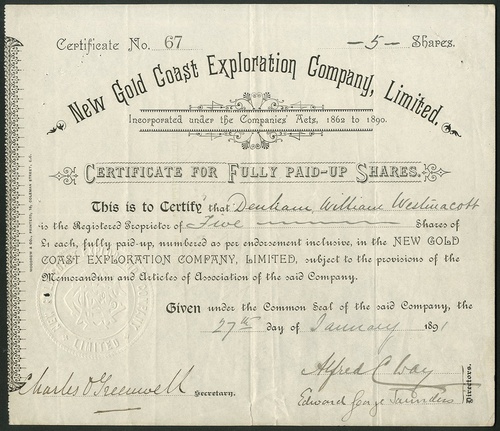 Certificate No. 67 —5— Shares.
New Gold Coast Exploration Company, Limited.
Incorporated under the Companies' Acts, 1862 to 1890.
CERTIFICATE FOR FULLY PAID-UP SHARES.
This is to Certify that Denham William Westmacott
is the Registered Proprietor of Five Shares of
£1 each, fully paid-up, numbered as per endorsement inclusive, in the NEW GOLD
COAST EXPLORATION COMPANY, LIMITED, subject to the provisions of the
Memorandum and Articles of Association of the said Company.
Given under the Common Seal of the said Company, the
27th day of January 1891
LIMITED
Charles O Greenwell Secretary.
Alfred C Way
Edward George Saunders
Directors.